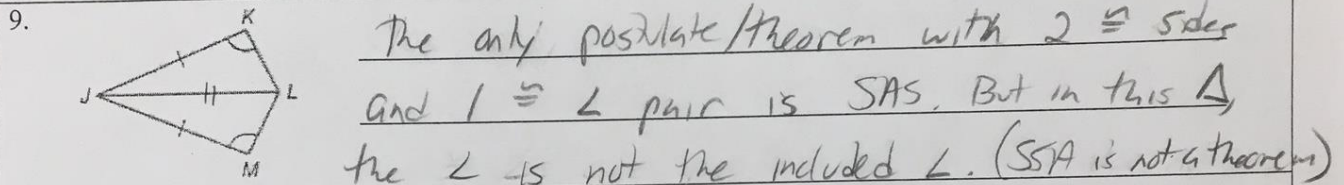 9.
K
J
L
M
The only postulate/theorem with 2 ≅ sides
and 1 ≅ ∠ pair is SAS. But in this Δ,
the ∠ is not the included ∠. (SSA is not a theorem)